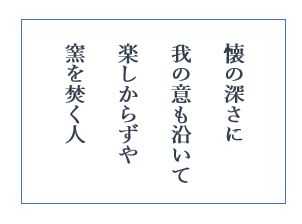 懐の深さに
我の意も沿いて
楽しからずや
窯を焚く人